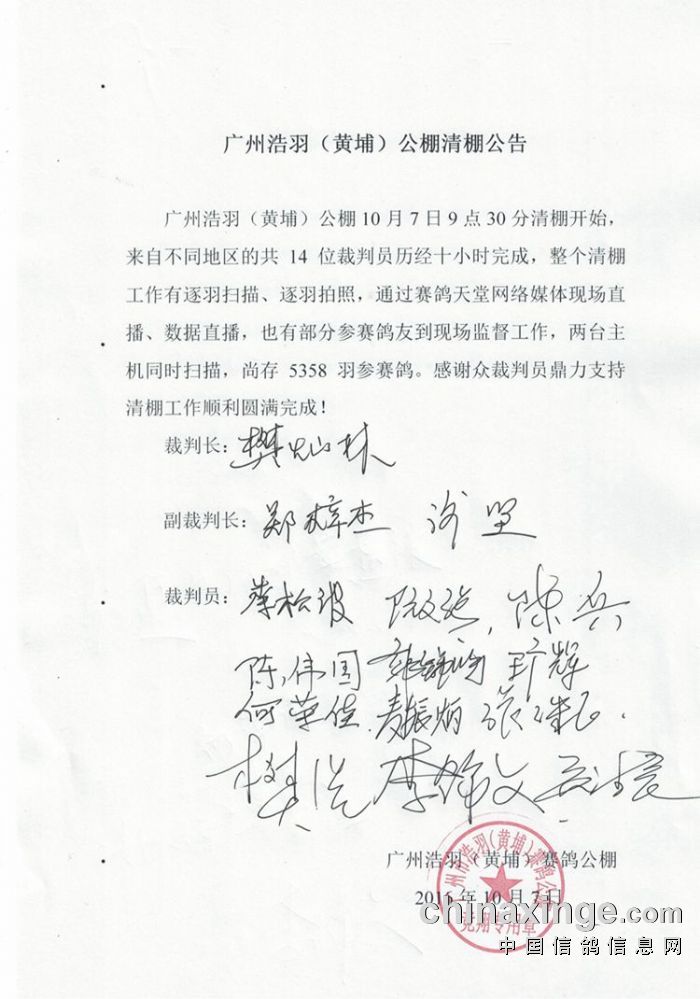 广州浩羽（黄埔）公棚清棚公告
广州浩羽（黄埔）公棚 10 月 7 日 9 点 30 分清棚开始，
来自不同地区的共 14 位裁判员历经十小时完成，整个清棚
工作有逐羽扫描、逐羽拍照，通过赛鸽天堂网络媒体现场直
播、数据直播，也有部分参赛鸽友到现场监督工作，两台主
机同时扫描，尚存 5358 羽参赛鸽。感谢众裁判员鼎力支持
清棚工作顺利圆满完成！
裁判长：樊灿林
副裁判长：郑梓杰
裁判员：陈兵
陈伟国
何荣佳 麦振炳
广州浩羽（黄埔）赛鸽公棚
年 10 月 7 日
chinaxinge.com
中国信鸽信息网